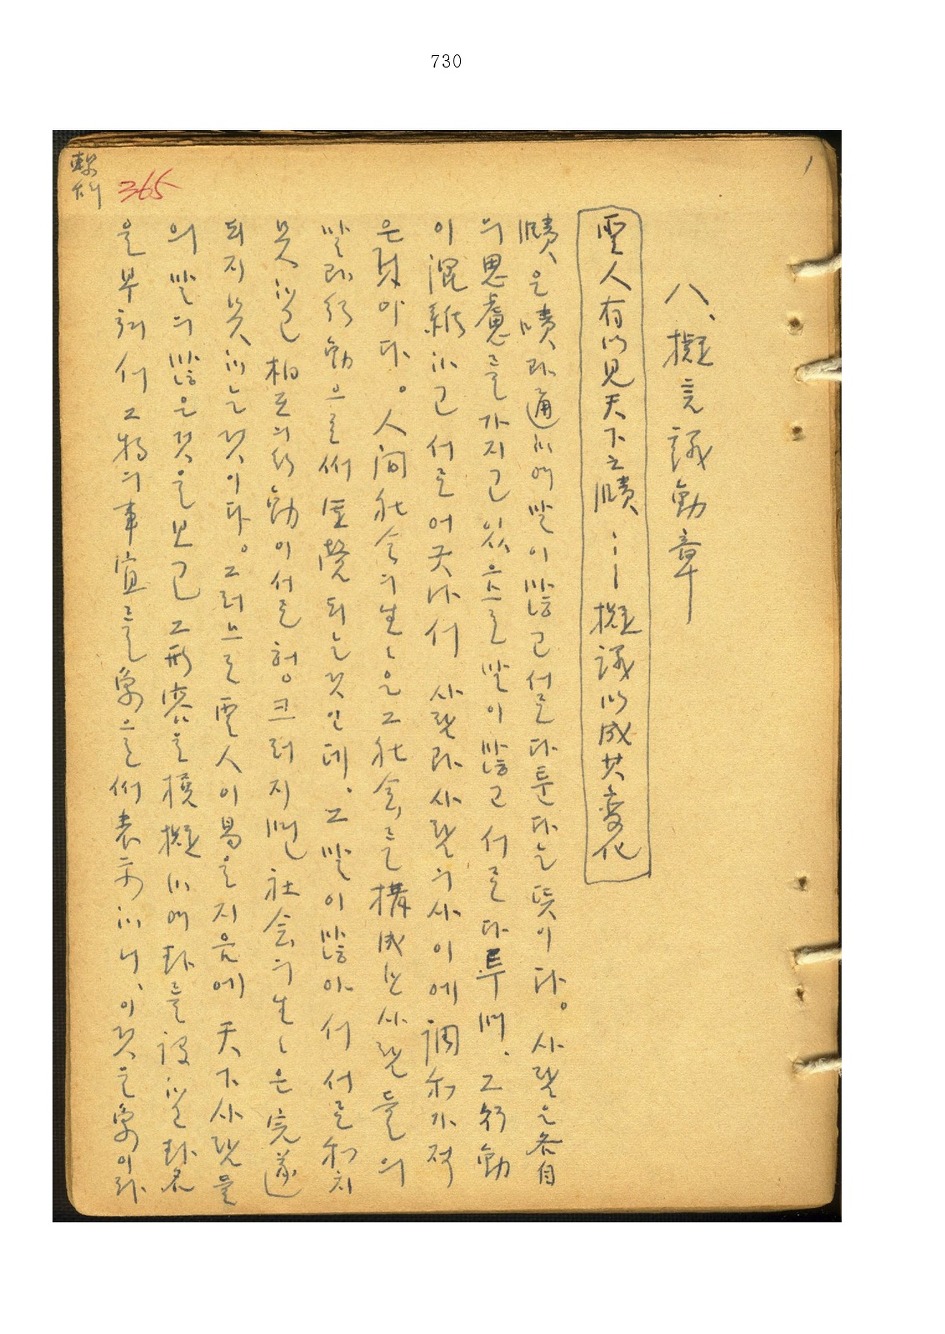 730
365
八、擬言議動章
聖人有以見天下之賾……擬議以成其変化
賾은嘖과通하며말이많고서로다툰다는뜻이다。사람은各自
의思慮를가지고있으므로말이많고서로다투며、그行動
이混雜하고서로어긋나서 사람과사람의사이에調和가적
은것이다。人間社会의生生은그社会를構成한사람들의
말과行動으로써 되는것인데、그말이많아서서로和치
못하고相互의行動이서로헝크러지면社会의生生은完遂
되지못하는것이다。그러므로聖人이易을지음에天下사람들
의말의많은것을보고그形容을模擬하며卦를設하고卦名
을부쳐서그物의事宜를象으로써表示하니、이것을象이라